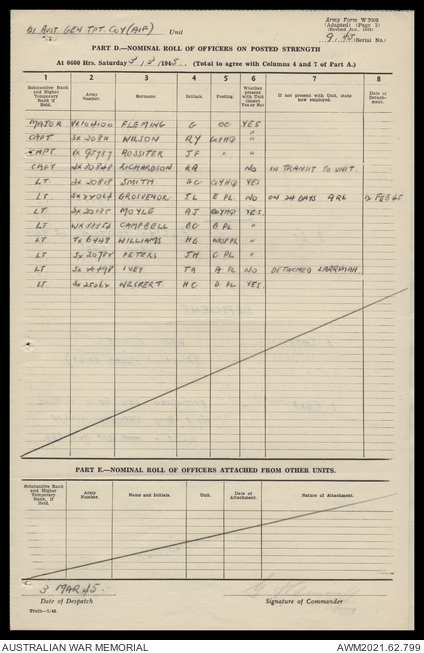 121 AUST GEN TPT COY (AIF) Unit
Army Form W 3008
(Adapted) (Page 2)
(Revised Jan., 1943)
9/45 (Serial No.)
PART D.—NOMINAL ROLL OF OFFICERS ON POSTED STRENGTH
At 0600 Hrs. Saturday 3/3/1945. (Total to agree with Columns 4 and 7 of Part A.)
1 2 3 4 5 6 7 8
Substantive Rank and Higher Temporary Rank if held. Army Number. Surname. Initials. Posting. Whether present with Unit (insert Yes or No) If not present with Unit, state now employed. Date of Detachment.
MAJOR VX104100 FLEMING G OC YES
CAPT WILSON RY COYHQ "
CAPT ROSSITER JF " "
CAPT RICHARDSON RA NO IN TRANSIT TO UNIT.
LT SX20818 SMITH AC COYHQ YES
LT GROSVENOR JL E PL NO ON 24 DAYS ARL FEB 45
LT MOYLE AJ COYHQ YES.
LT CAMPBELL BC B PL "
LT TX6448 WILLIAMS HG WKSP PL "
LT PETERS JH C PL "
LT IVEY TA A PL NO DETACHED
LT WECKERT HC D PL YES.
PART E.—NOMINAL ROLL OF OFFICERS ATTACHED FROM OTHER UNITS.
Substantive Rank and Higher Temporary Rank, if Held. Army Number. Name and Initials. Unit. Date of Attachment. Nature of Attachment.
3 MAR 45.
Date of Despatch Signature of Commander
Truth—7/43.
AUSTRALIAN WAR MEMORIAL AWM2021.62.799